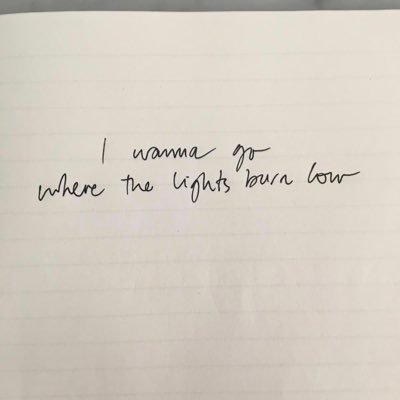 I wanna go
where the lights burn low